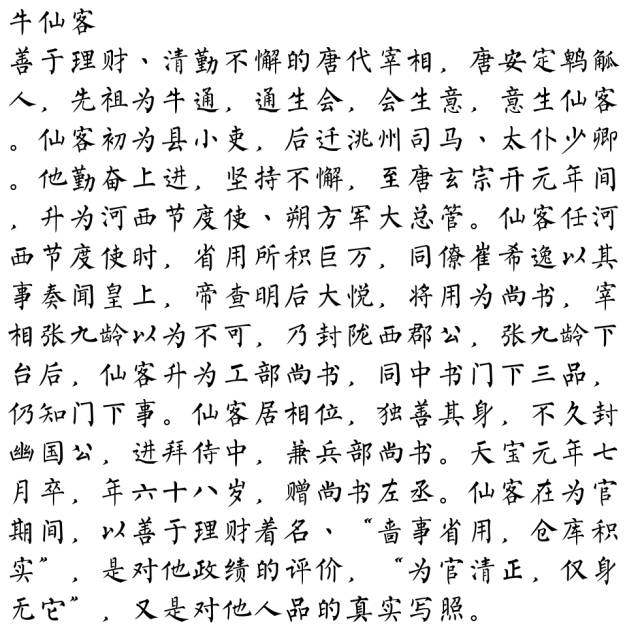 牛仙客
善于理财、清勤不懈的唐代宰相，唐安定鹑觚
人，先祖为牛通，通生会，会生意，意生仙客
。仙客初为县小吏，后迁洮州司马、太仆少卿
。他勤奋上进，坚持不懈，至唐玄宗开元年间
，升为河西节度使、朔方军大总管。仙客任河
西节度使时，省用所积巨万，同僚崔希逸以其
事奏闻皇上，帝查明后大悦，将用为尚书，宰
相张九龄以为不可，乃封陇西郡公，张九龄下
台后，仙客升为工部尚书，同中书门下三品，
仍知门下事。仙客居相位，独善其身，不久封
幽国公，进拜侍中，兼兵部尚书。天宝元年七
月卒，年六十八岁，赠尚书左丞。仙客在为官
期间，以善于理财着名、“啬事省用，仓库积
实”，是对他政绩的评价，“为官清正，仅身
无它”，又是对他人品的真实写照。